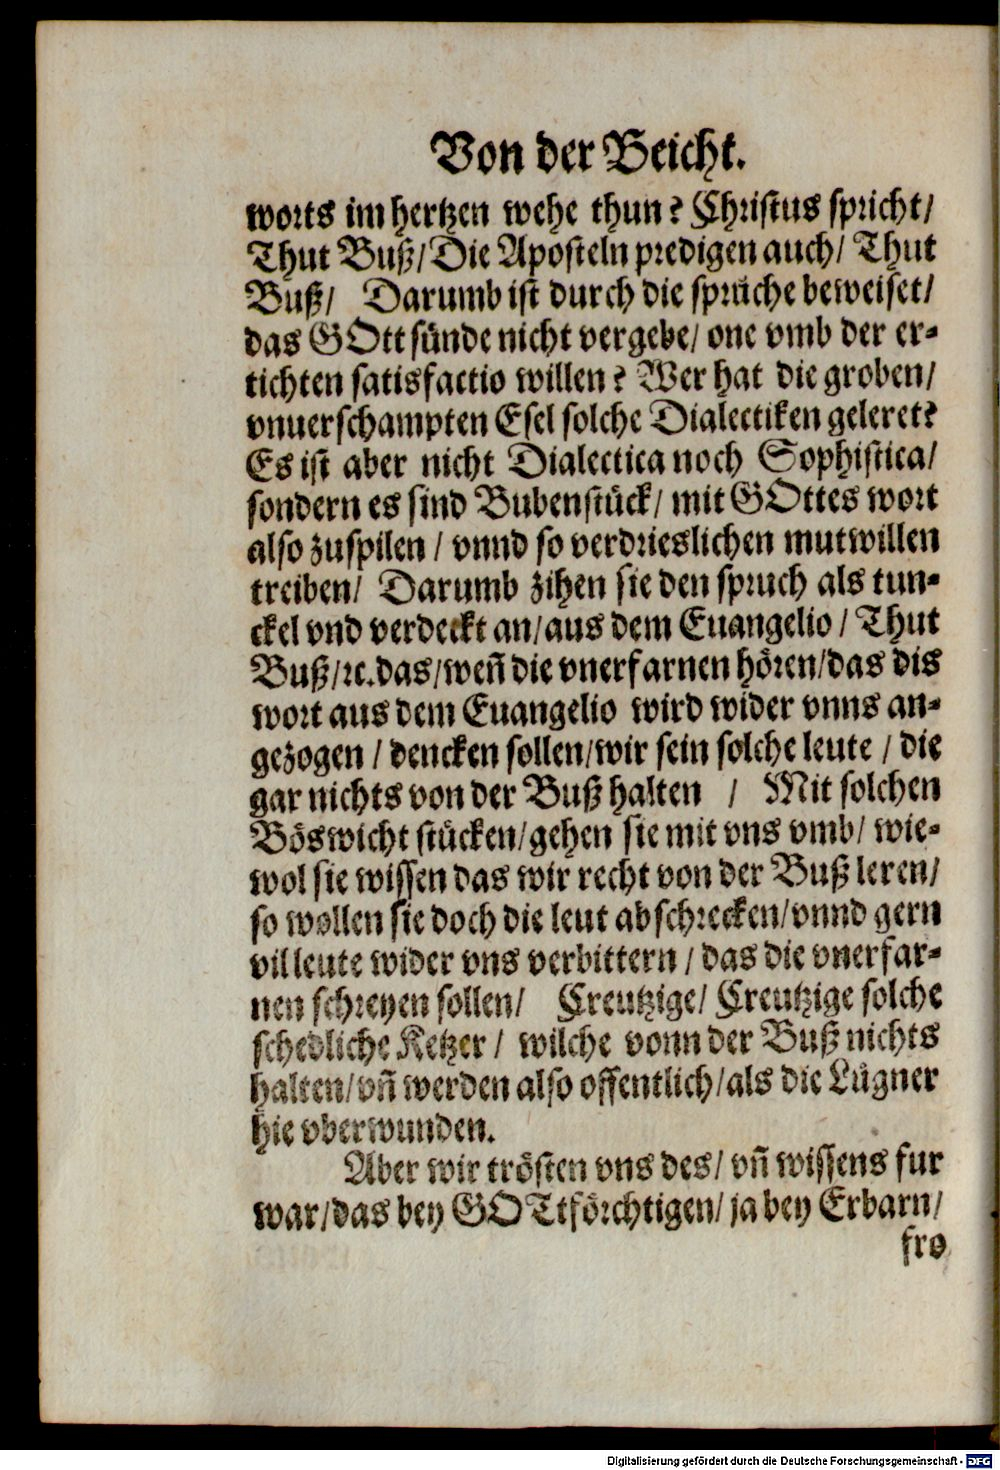 Von der Beicht.
worts im hertzen wehe thun? Christus spricht/
Thut Buß/Die Aposteln predigen auch/ Thut
Buß/ Darumb ist durch die sprüche beweiset/
das GOtt sünde nicht vergebe/ one vmb der er-
tichten satisfactio willen? Wer hat die groben/
vnuerschampten Esel solche Dialectiken geleret?
Es ist aber nicht Dialectica noch Sophistica/
sondern es sind Bubenstück/ mit GOttes wort
also zuspilen / vnnd so verdrieslichen mutwillen
treiben/ Darumb zihen sie den spruch als tun-
ckel vnd verdeckt an/aus dem Euangelio / Thut
Buß/ꝛc.das/weñ die vnerfarnen hören/das dis
wort aus dem Euangelio wird wider vnns an-
gezogen / dencken sollen/wir sein solche leute / die
gar nichts von der Buß halten / Mit solchen
Böswicht stücken/gehen sie mit vns vmb/ wie-
wol sie wissen das wir recht von der Buß leren/
so wollen sie doch die leut abschrecken/vnnd gern
vil leute wider vns verbittern / das die vnerfar-
nen schreyen sollen/ Creutzige/ Creutzige solche
schedliche Ketzer / wilche vonn der Buß nichts
halten/vñ werden also offentlich/als die Lügner
hie vberwunden.
Aber wir trösten vns des/ vñ wissens fur
war/das bey GOTtförchtigen/ ja bey Erbarn/
fro
Digitalisierung gefördert durch die Deutsche Forschungsgemeinschaft - DFG